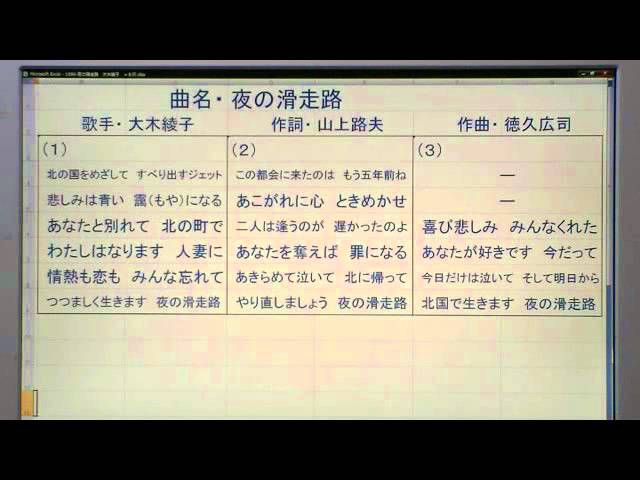 曲名・夜の滑走路
歌手・大木綾子 作詞・山上路夫 作曲・徳久広司
(1)
北の国をめざして すべり出すジェット
悲しみは青い 靄(もや)になる
あなたと別れて 北の町で
わたしはなります 人妻に
情熱も恋も みんな忘れて
つつましく生きます 夜の滑走路
(2)
この都会に来たのは もう五年前ね
あこがれに心 ときめかせ
二人は逢うのが 遅かったのよ
あなたを奪えば 罪になる
あきらめて泣いて 北に帰って
やり直しましょう 夜の滑走路
(3)
―
―
喜び悲しみ みんなくれた
あなたが好きです 今だって
今日だけは泣いて そして明日から
北国で生きます 夜の滑走路